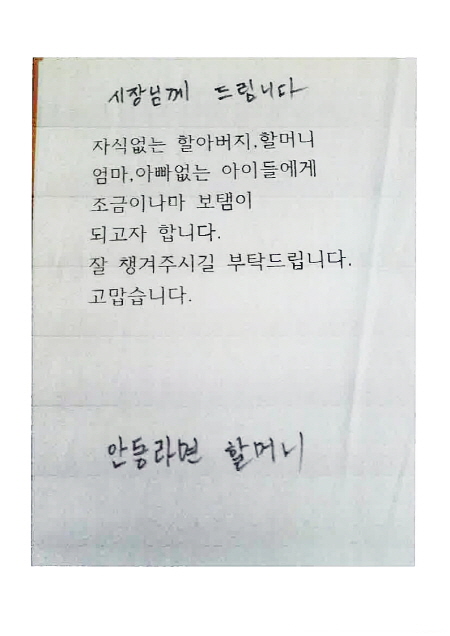 시장님께 드립니다
자식없는 할아버지,할머니
엄마,아빠없는 아이들에게
조금이나마 보탬이
되고자 합니다.
잘 챙겨주시길 부탁드립니다.
고맙습니다.
안동라면 할머니